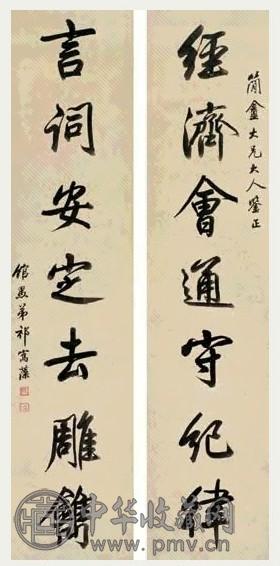 簡盦大兄大人鉴正
經濟會通守紀律
言詞安定去雕鐫
館愚弟祁寯藻
中华收藏网
www.pmv.cn